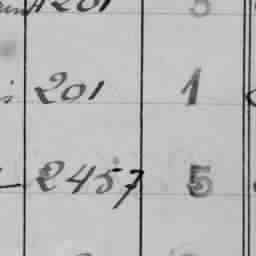 201 5
201 1
2457 5